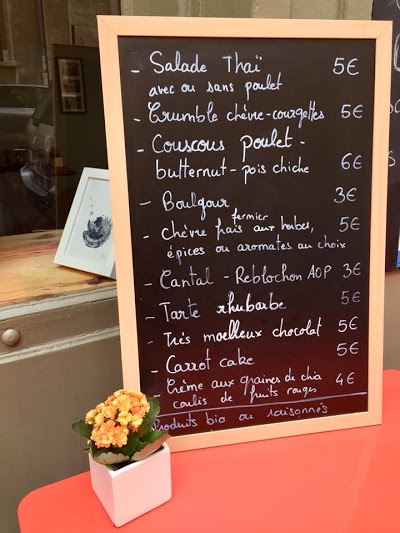 - Salade Thaï 5€
avec ou sans poulet
- Crumble chèvre-courgettes 5€
- Couscous poulet -
butternut - pois chiche 6€
- Boulgour 3€
fermier
- chèvre frais aux herbes, 5€
épices ou aromates au choix
- Cantal - Reblochon AOP 3€
- Tarte rhubarbe 5€
- Très moelleux chocolat 5€
- Carrot cake 5€
- Crème aux graines de chia 4€
coulis de fruits rouges
Produits bio ou saisonnés